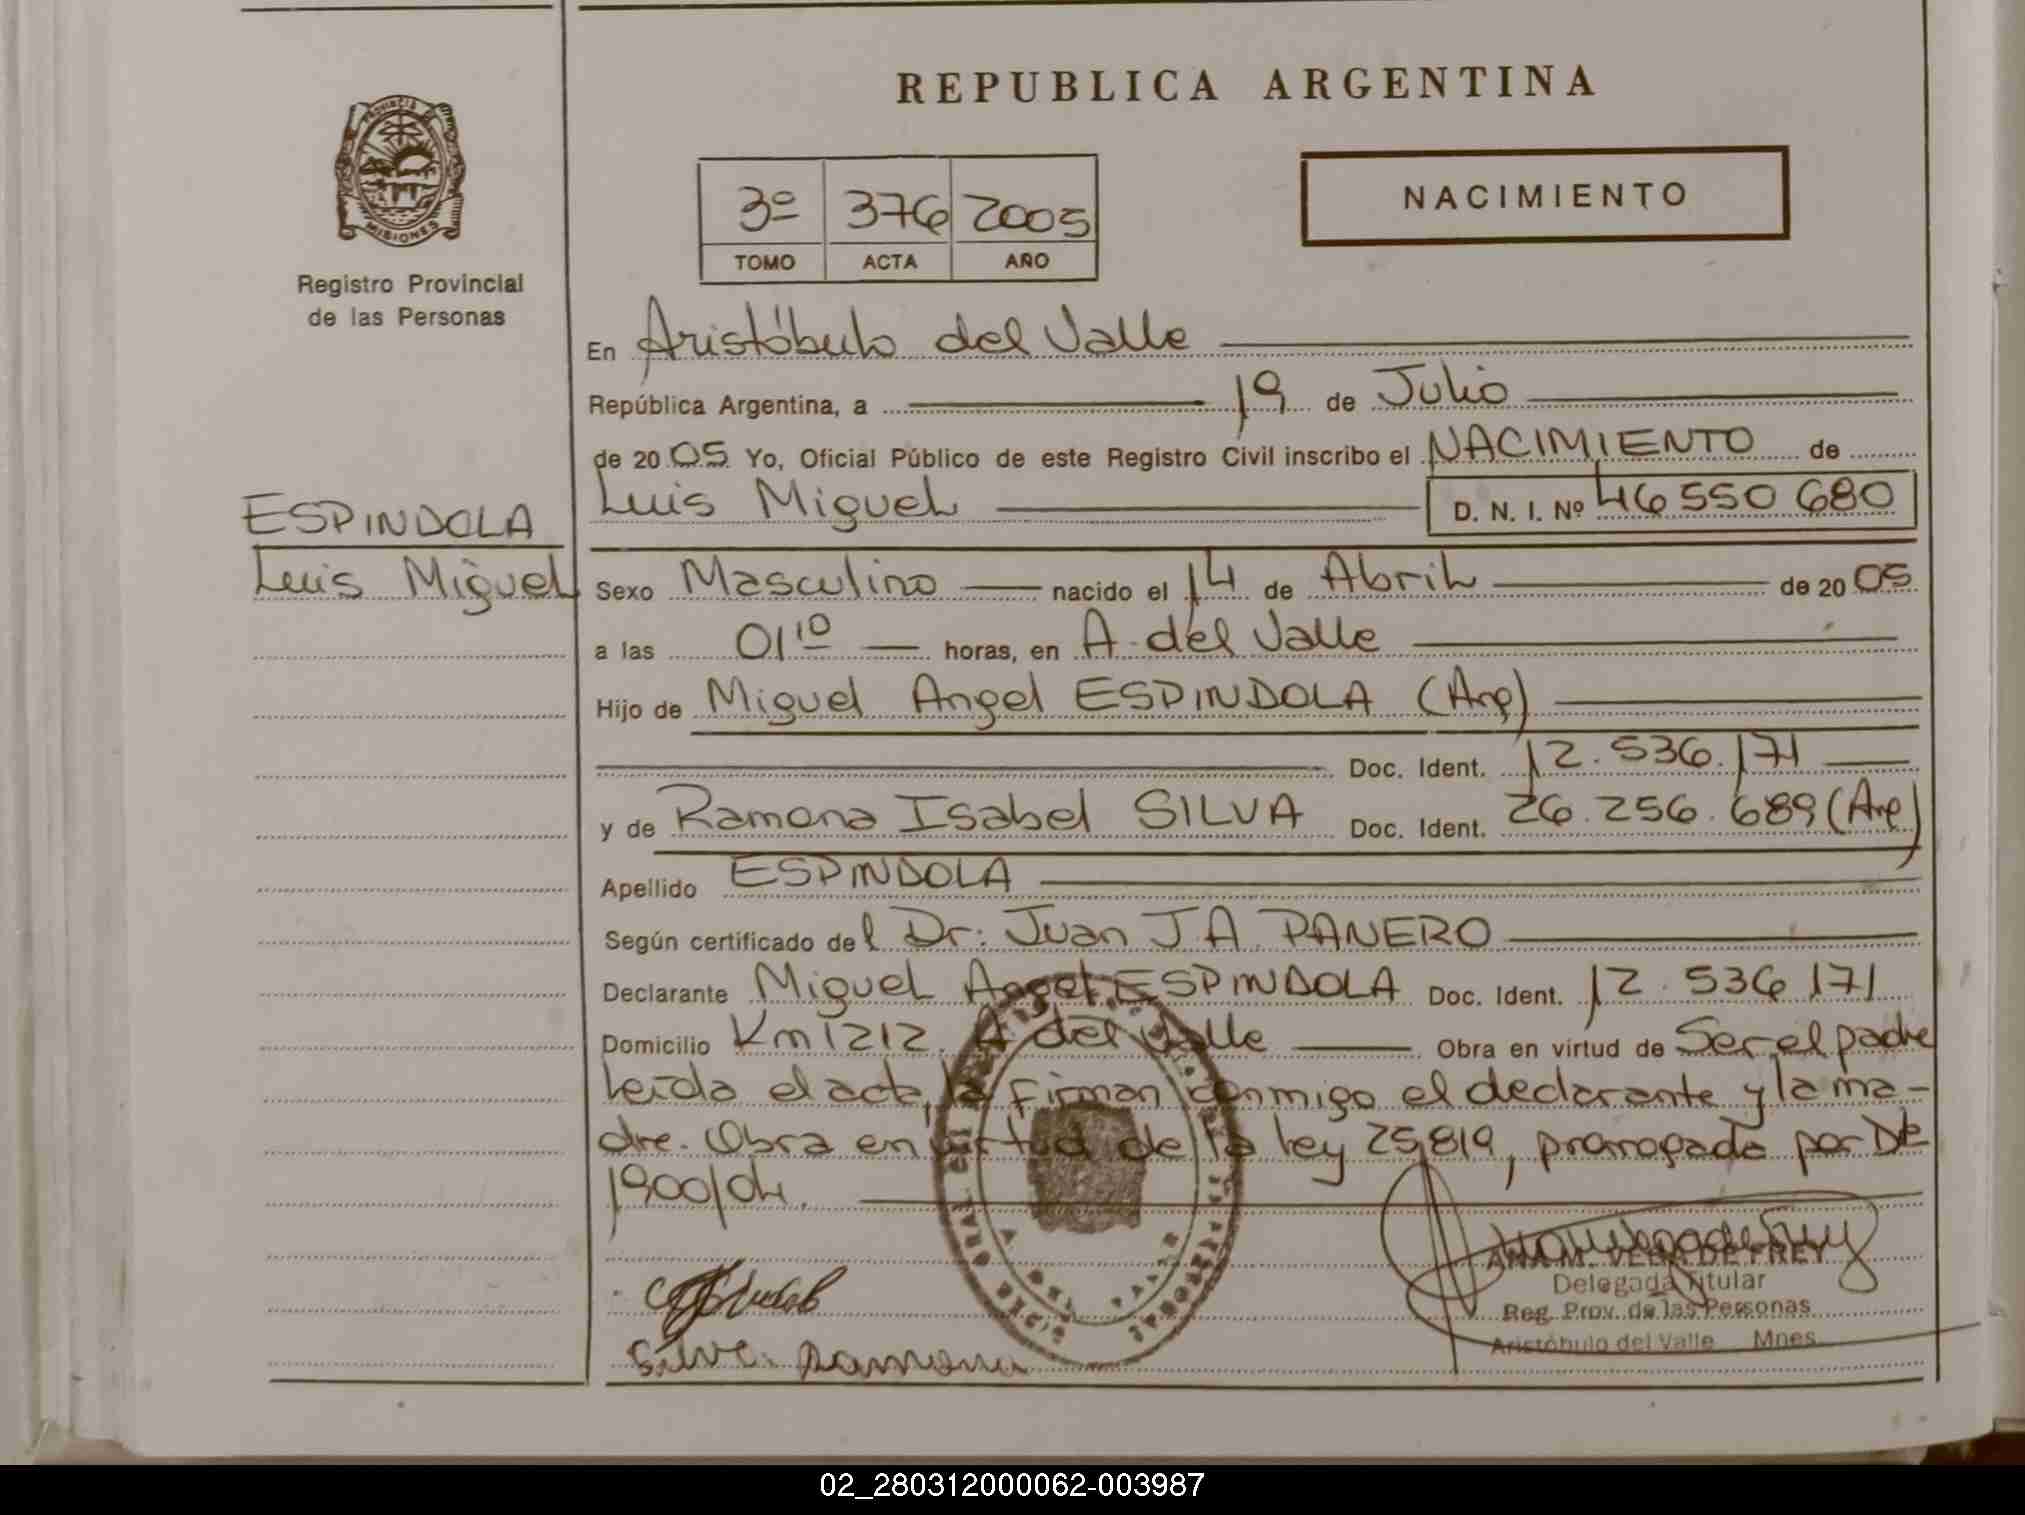 REPUBLICA ARGENTINA
PROVINCIA DE
MISIONES
Registro Provincial
de las Personas
3º 376 2005
TOMO ACTA AÑO
NACIMIENTO
En Aristóbulo del Valle
República Argentina, a 19 de Julio
de 2005 Yo, Oficial Público de este Registro Civil inscribo el NACIMIENTO de
Luis Miguel D. N. I. Nº 46 550 680
ESPINDOLA
Luis Miguel
Sexo Masculino nacido el 14 de Abril de 2005
a las 01 10 horas, en A. del Valle
Hijo de Miguel Angel ESPINDOLA (Arg)
Doc. Ident. 12.536.171
y de Ramona Isabel SILVA Doc. Ident. 26.256.689 (Arg)
Apellido ESPINDOLA
Según certificado del Dr: Juan J.A. PANERO
Declarante Miguel Angel ESPINDOLA Doc. Ident. 12.536.171
Domicilio Km 1212. A del Valle Obra en virtud de Ser el padre
Leída el acta, la firman conmigo el declarante y la ma-
dre. Obra en virtud de la ley 25819, prorrogada por
1900/04.
ANA M. VEGA DE FREY
Delegada Titular
Reg. Prov. de las Personas
Aristóbulo del Valle Mnes
Silva Ramona
02_280312000062-003987